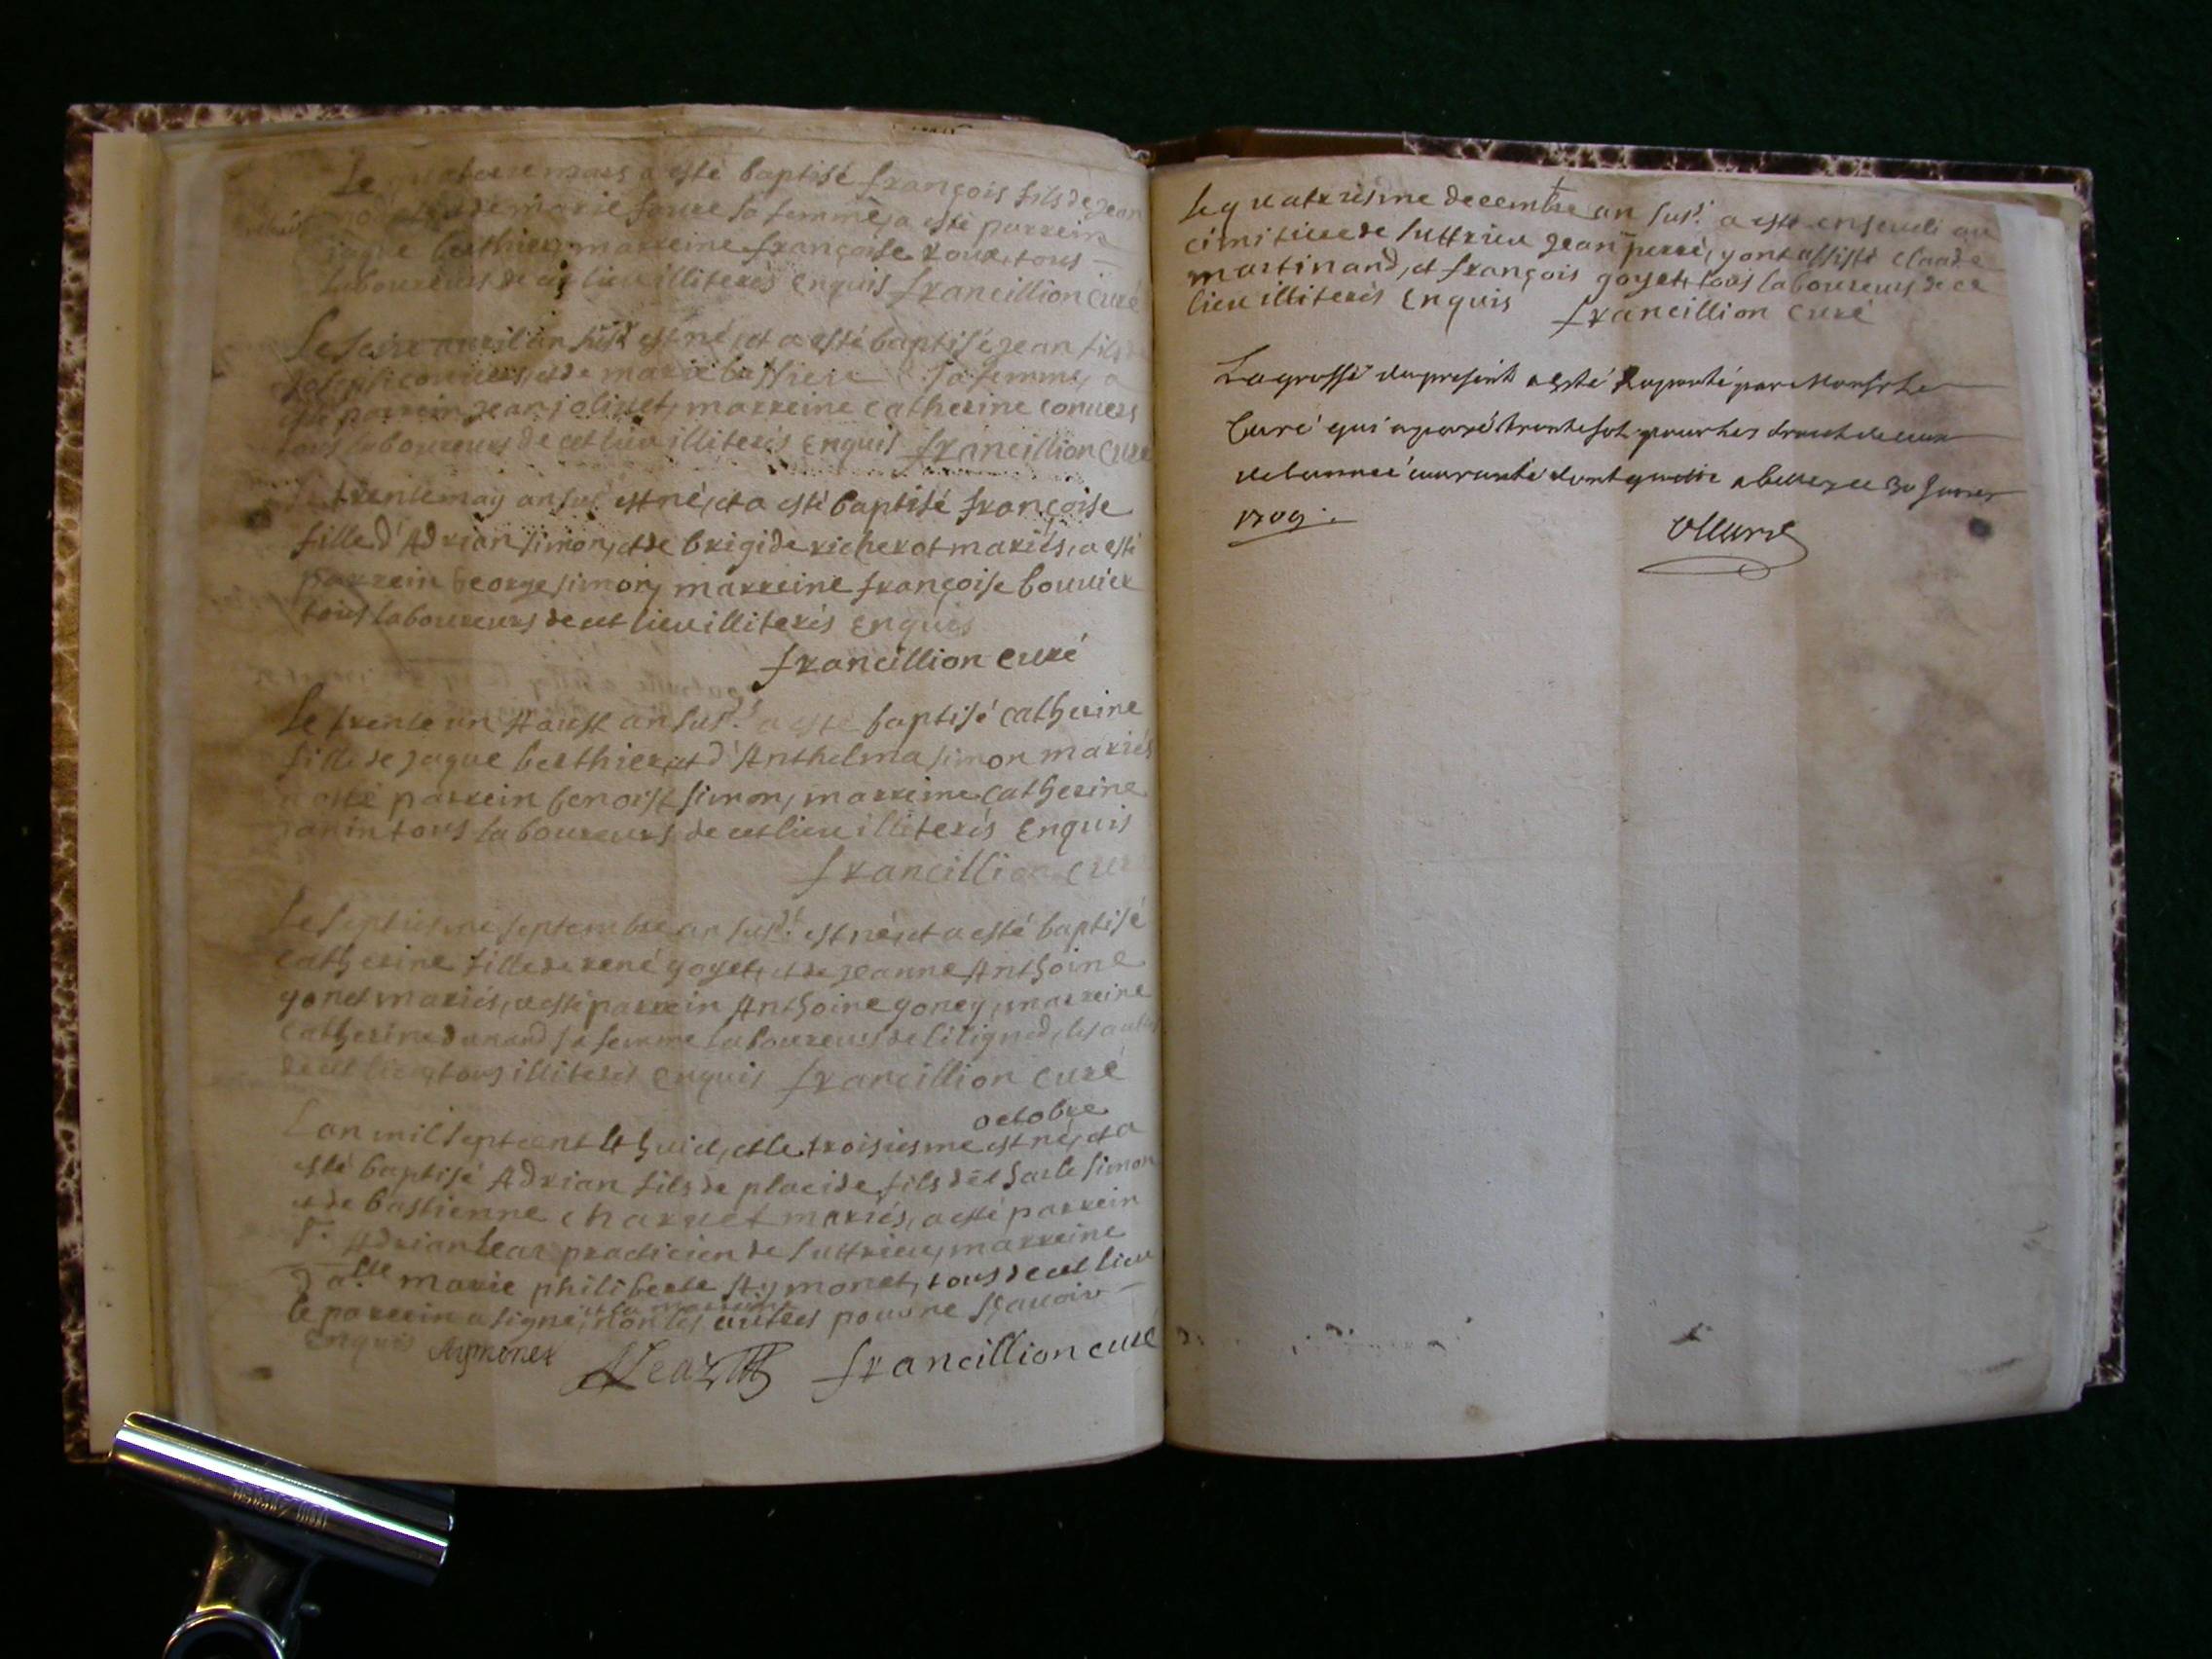 Le quatorze mars a esté baptisé françois fils de jean
et de marie sa femme, a esté parrein
jaque berthier, marreine françoise roux, tous
laboureurs de ce lieu illiterés Enquis francillion curé
Le seize avril an susd. est né, et a esté baptisé jean fils de
joseph conuers, et de marie bussiere sa femme, a
esté parrein jean joliuet, marreine catherine conuers
tous laboureurs de cet lieu illiterés Enquis francillion curé
Le trente may an sus.d est né, et a esté baptisé françoise
fille d'Adrian simon, et de brigide richerot mariés, a esté
parrein George simon, marreine françoise bouuier
tous laboureurs de cet lieu illiterés Enquis
francillion curé
Le trente un Aoust an sus.d a esté baptisé catherine
fille de jaque berthier, et d'Anthelma simon mariés
a esté parrein benoist simon, marreine catherine
janin tous laboureurs de cet lieu illiterés Enquis
francillion curé
Le septiesme septembre an sus.d est né, et a esté baptisé
catherine fille de rené goyet, et de jeanne Anthoine
gonet mariés, a esté parrein Anthoine goney, marreine
catherine dunand sa femme laboureurs de litignod, les autres
de cet lieu, tous illiterés Enquis francillion curé
octobre
Lan mil sept cent & huict, et le troisiesme est né, et a
esté baptisé Adrian fils de placide fils de charle simon
et de bastienne charuet mariés, a esté parrein
S.r Adrian Lear practicien de suttrieu, marreine
da.lle marie philiberte Aymonet, tous de cet lieu
et la marreine
le parrein a signé, non les autres pour ne sçauoir
Enquis Aymonet ALear francillion curé
Le quatriesme decembre an sus.d a esté enseueli au
cimitiere de suttrieu jean perré, y ont assisté claude
martinand, et françois goyet, tous laboureurs de ce
lieu illiterés Enquis francillion curé
La grosse du present a esté raporté par Monsr le
Curé qui a payé trente sols pour les droits
de lannée courante dont quitte a Belley ce 30 Janvier
1709.